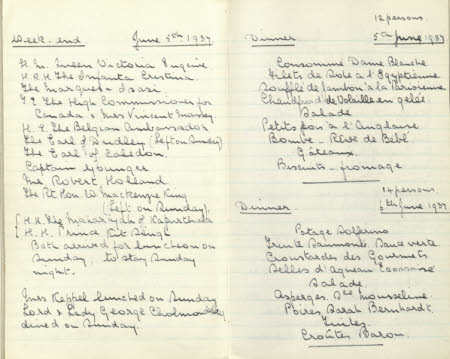 Week-end June 5th 1937
H.M. Queen Victoria Eugenie.
H.R.H The Infanta Cristina.
The Marquesa Isasi
T.E The High Commissioner for
Canada & Mrs Vincent Massey
H.E The Belgian Ambassador
The Earl of Dudley (left on Sunday)
The Earl of Caledon.
Captain Younger
Mr Robert Holland.
The Rt Hon. W. Mackenzie King
(left on Sunday).
H.H. The Maharajah of Kapurthala
H.H. Prince Kit Singh
Both arrived for luncheon on
Sunday, to stay Sunday
night.
Mrs Keppel lunched on Sunday
Lord & Lady George Cholmondeley
dined on Sunday.
12 persons.
Dinner 5th June 1937
Consommé Dame Blanche
Filets de Sole à l'Egyptienne
Soufflé de Jambon à la Parisienne
Chaudfroid de Volaille en gelée
Salade
Petits pois à l'Anglaise
Bombe - Rêve de Bébé
Gâteaux.
Biscuits - fromage
14 persons.
Dinner 6th June 1937
Potage Solferino
Truite Saumonée Sauce verte.
Croustardes des Gourmets
Selles d'Agneau
Salade
Asperges Sce Mousseline.
Poires Sarah Bernhardt
Croûtes Baron.